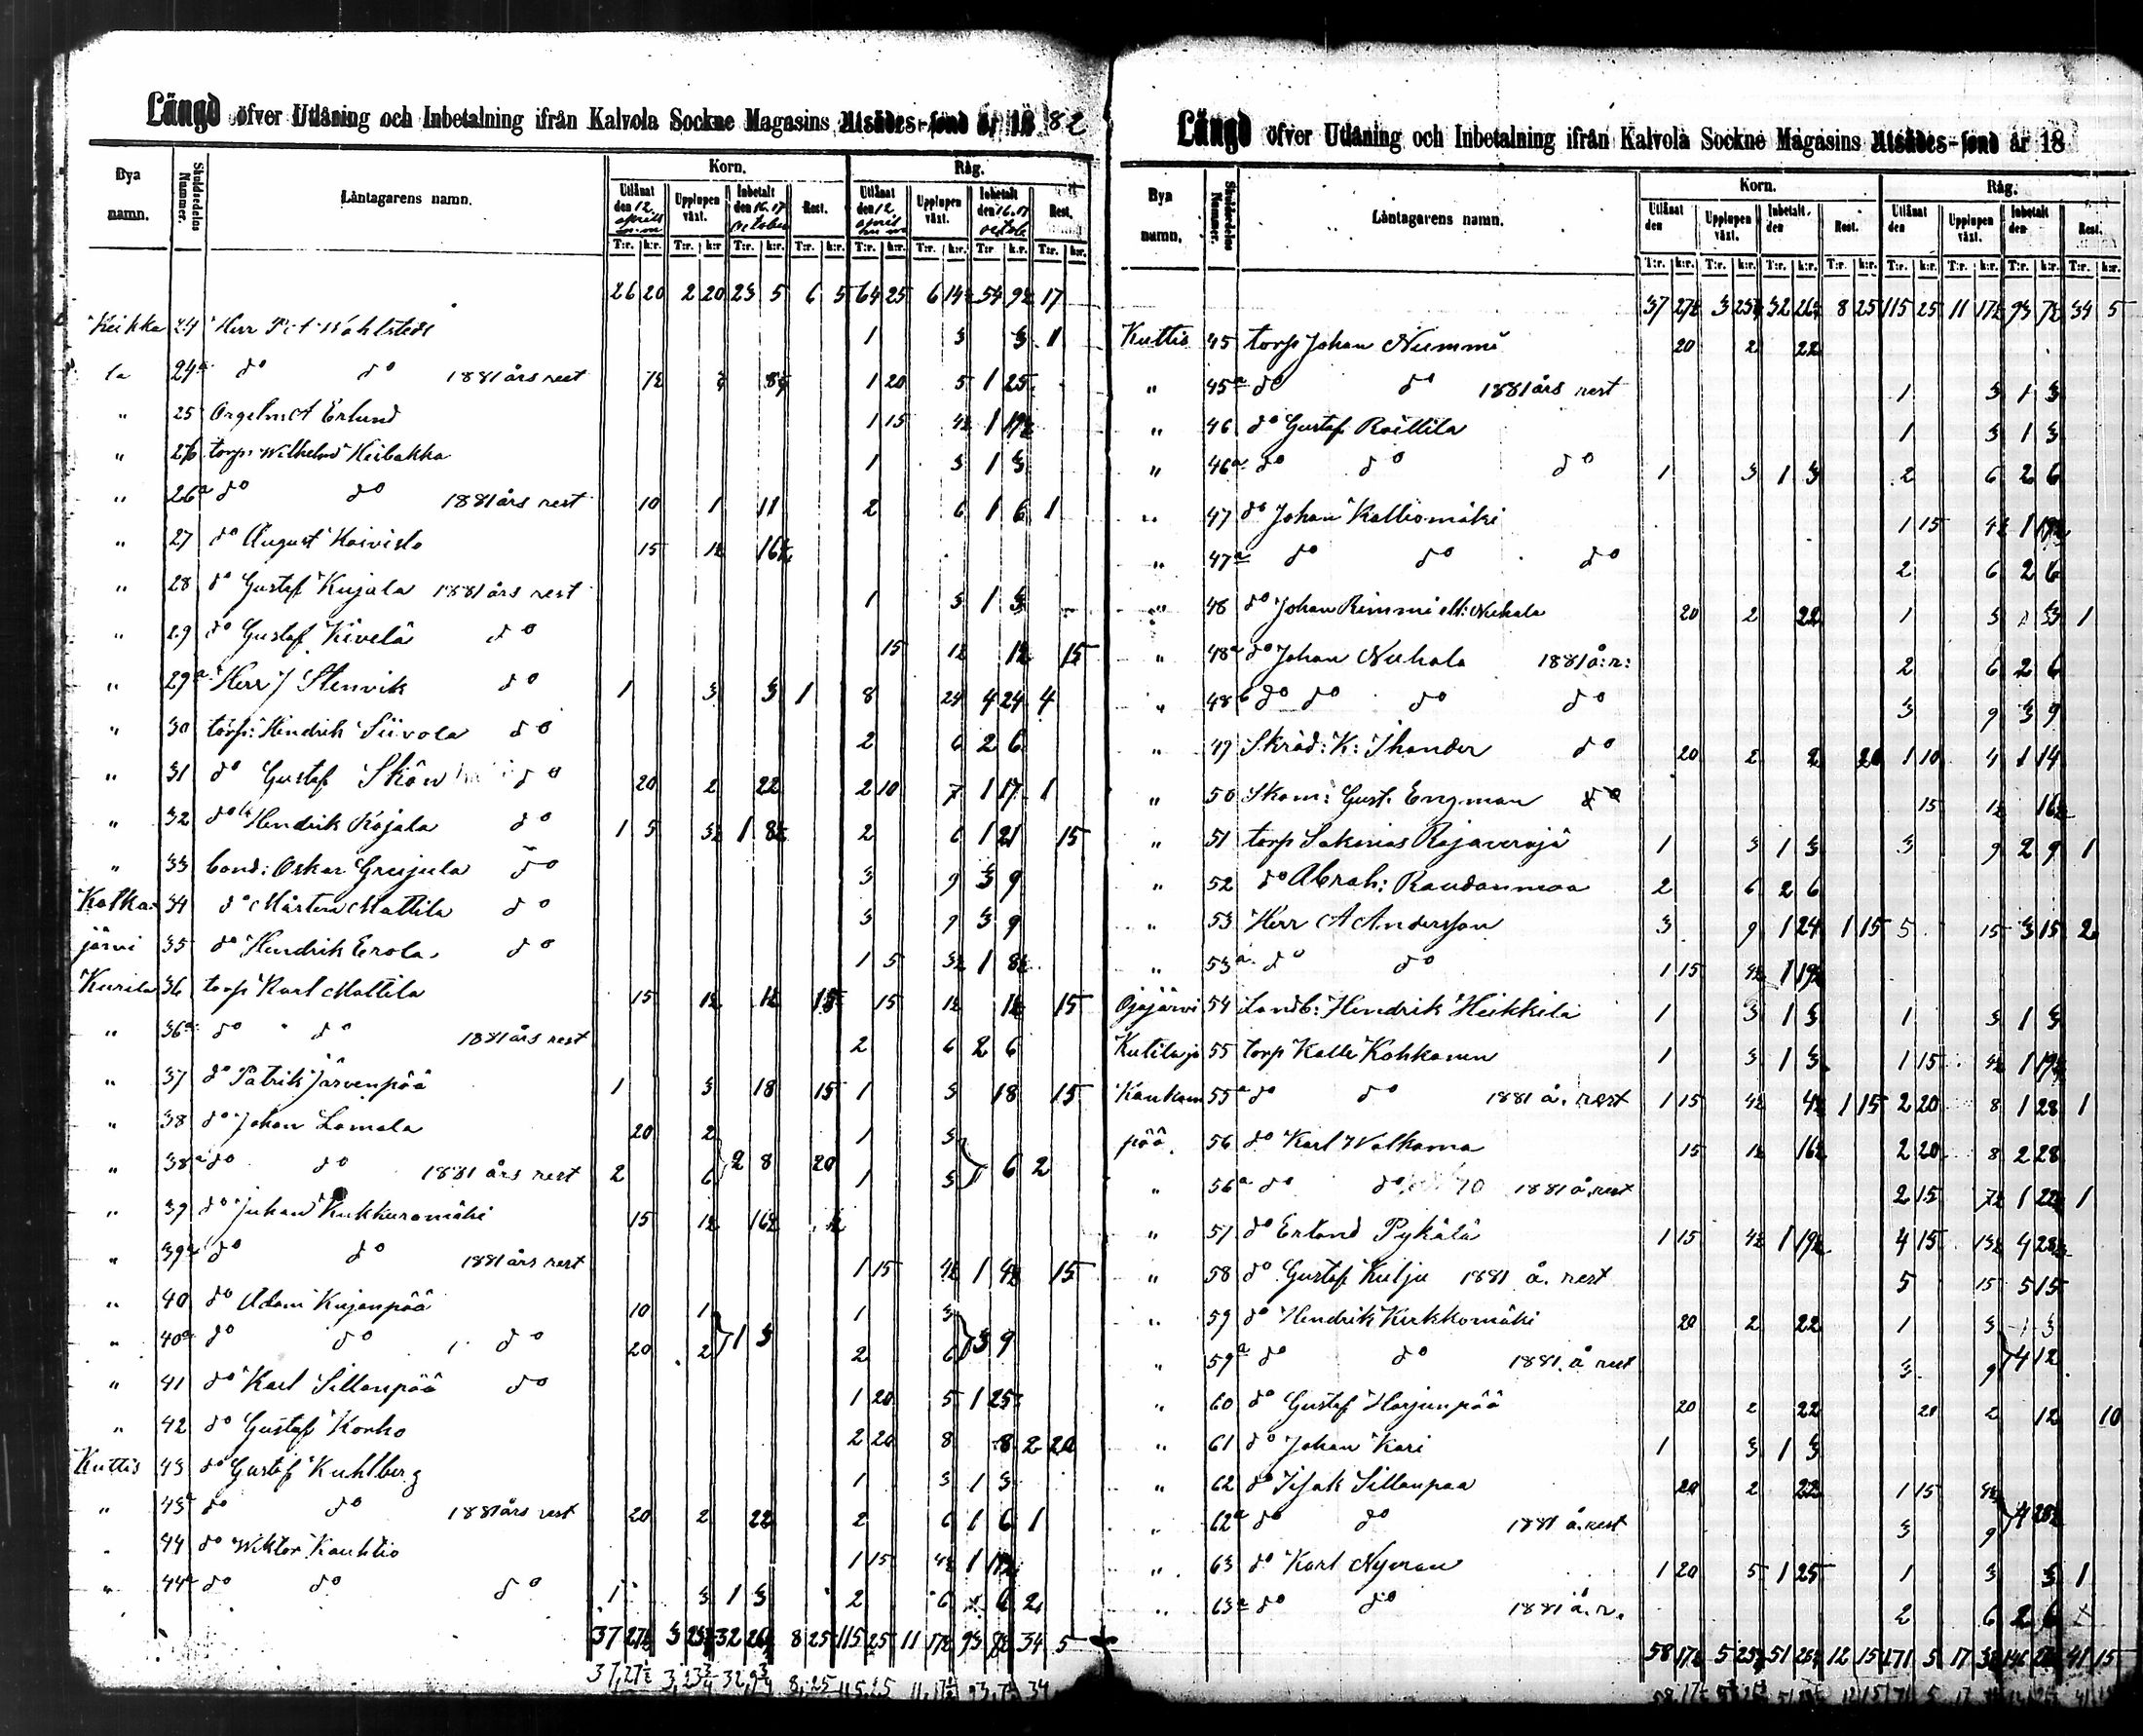 Längd öfver Utlåning och Inbetalning ifrån Kalvola Sockne Magasins Utsädes-fond år 1882
Bya namn. Skuldsedelns Nummer. Låntagarens namn. Korn. Råg.
Utlånat den 12 april Upplupen växt. Inbetalt den 16.17 October Rest. Utlånat den 12 april Upplupen växt. Inbetalt den 16.17 Rest.
T:r. k:r. T:r. k:r. T:r. k:r. T:r. k:r. T:r. k:r. T:r. k:r. T:r. k:r. T:r. k:r.
26 20 2 20 23 5 6 5 64 25 6 14½ 54 9½ 17
Keikka 24 Herr 1 3 3 1
la 24a do do 1881 års rest 7½ ¾ 8¼ 1 20 5 1 25
" 25 Erlund 1 15 4½ 1 19½
" 26 torp: Wilhelm 1 3 1 3
" 26a do do 1881 års rest 10 1 11 2 6 1 6 1
" 27 do August Koivisto 15 1½ 16½
" 28 do Gustaf Kujala 1881 års rest 1 3 1 3
" 29 do Gustaf Kivelä do 15 1½ 1½ 15
" 29a Herr J Stenvik do 1 3 3 1 8 24 4 24 4
" 30 torp: Hendrik Siivola do 2 6 2 6
" 31 do Gustaf Skön do 20 2 22 2 10 7 1 17 1
" 32 do Hendrik Rajala do 1 5 3½ 1 8½ 2 6 1 21 15
" 33 bond: Oskar do 3 9 3 9
Kotka 34 do Mårten Mattila do 3 9 3 9
järvi 35 do Hendrik Erola do 1 5 3½ 1 8½
Kurila 36 torp Karl Mattila 15 1½ 1½ 15 15 1½ 1½ 15
" 36a do do 1881 års rest 2 6 2 6
" 37 do Patrik Järvenpää 1 3 18 15 1 3 18 15
" 38 do Johan Lamala 20 2 1 3
" 38a do do 1881 års rest 2 6 2 8 20 1 3 6 2
" 39 do Juhan Kukkuromäki 15 1½ 16½
" 39a do do 1881 års rest 1 15 4½ 1 4½ 15
" 40 do Adam Kujanpää 10 1 1 3
" 40a do do do 20 2 1 3 2 6 3 9
" 41 do Karl Sillanpää do 1 20 5 1 25
" 42 do Gustaf Korho 2 20 8 8 2 20
Kuttis 43 do Gustaf Kuhlberg 1 3 1 3
" 43a do do 1881 års rest 20 2 22 2 6 1 6 1
" 44 do Wiktor Kauhtio 1 15 4½ 1 19½
" 44a do do do 1 3 1 3 2 6 6 2
37 27½ 3 23¾ 32 26¼ 8 25 115 25 11 17½ 93 7½ 34 5
37 27½ 3 23¾ 32 8 25 115 25 11 17½ 93 7½ 34
Längd öfver Utlåning och Inbetalning ifrån Kalvola Sockne Magasins Utsädes-fond år 18
Bya namn. Skuldsedelns Nummer. Låntagarens namn. Korn. Råg.
Utlånat den Upplupen växt. Inbetalt den Rest. Utlånat den Upplupen växt. Inbetalt den Rest.
T:r. k:r. T:r. k:r. T:r. k:r. T:r. k:r. T:r. k:r. T:r. k:r. T:r. k:r. T:r. k:r.
37 27½ 3 23¾ 32 26¼ 8 25 115 25 11 17½ 93 7½ 34 5
Kuttis 45 torp Johan Nummi 20 2 22
" 45a do do 1881 års rest 1 3 1 3
" 46 do Gustaf Raittila 1 3 1 3
" 46a do do do 1 3 1 3 2 6 2 6
" 47 do Johan Kalliomäki 1 15 4½ 1 19½
" 47a do do do 2 6 2 6
" 48 do Johan 20 2 22 1 3 3 1
" 48a do Johan 1881 å:r: 2 6 2 6
" 48b do do do do 3 9 3 9
" 49 Skräd: K: Thander do 20 2 2 20 1 10 4 1 14
" 50 Skom: Gust. Engman do 15 1½ 16½
" 51 torp Sakarias 1 3 1 3 3 9 2 9 1
" 52 do Abrah: Raudanmaa 2 6 2 6
" 53 Herr A Andersson 3 9 1 24 1 15 5 15 3 15 2
" 53a do do 1 15 4½ 1 19½
Ojajärvi 54 Landb: Hendrik Heikkilä 1 3 1 3 1 3 1 3
Kutilaj 55 torp Kalle Kohkanen 1 3 1 3 1 15 4½ 1 19½
Kankam 55a do do 1881 å. rest 1 15 4½ 4½ 1 15 2 20 8 1 28 1
pää. 56 do Karl Walkama 15 1½ 16½ 2 20 8 2 28
" 56a do do 1881 å rest 2 15 7½ 1 22½ 1
" 57 do Erland Pykälä 1 15 4½ 1 19½ 4 15 13½ 4 28½
" 58 do Gustaf Kulju 1881 å. rest 5 15 5 15
" 59 do Hendrik Kirkkomäki 20 2 22 1 3 1 3
" 59a do do 1881 å rest 3 9 4 12
" 60 do Gustaf Harjunpää 20 2 22 20 2 12 10
" 61 do Johan Kari 1 3 1 3
" 62 do Iisak Sillanpaa 20 2 22 1 15 4½
" 62a do do 1881 å. rest 3 9 4 28½
" 63 do Karl Nyman 1 20 5 1 25 1 3 3 1
" 63a do do 1881 å. r. 2 6 2 6
58 17½ 5 25¾ 51 12 15 171 5 17 41 15